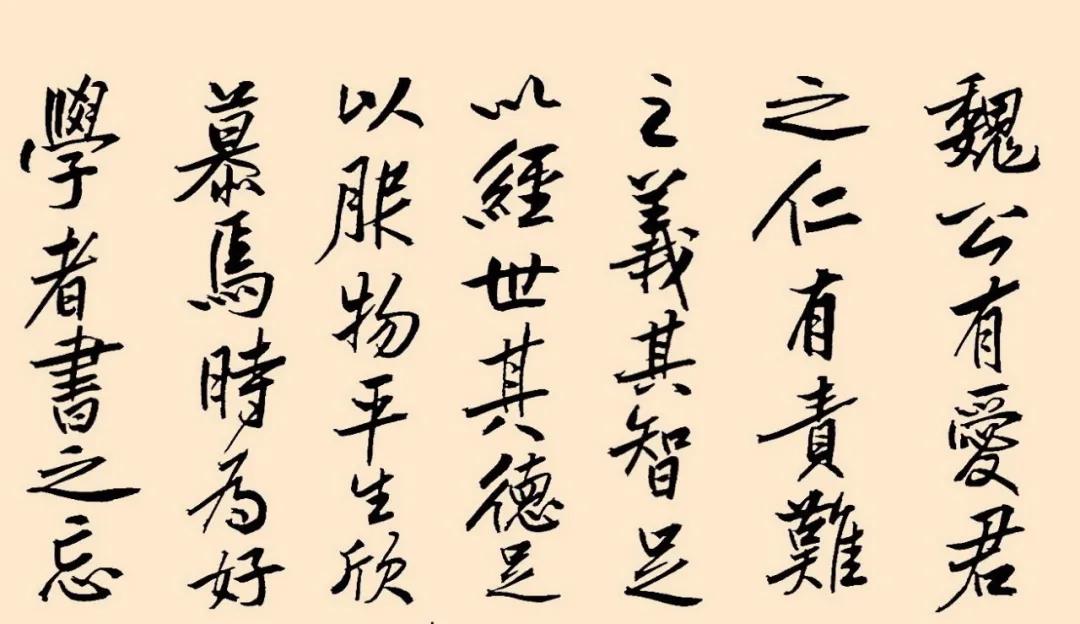 魏公有愛君
之仁有責難
之義其智足
以經世其德足
以服物平生欣
慕焉時為好
學者書之忘